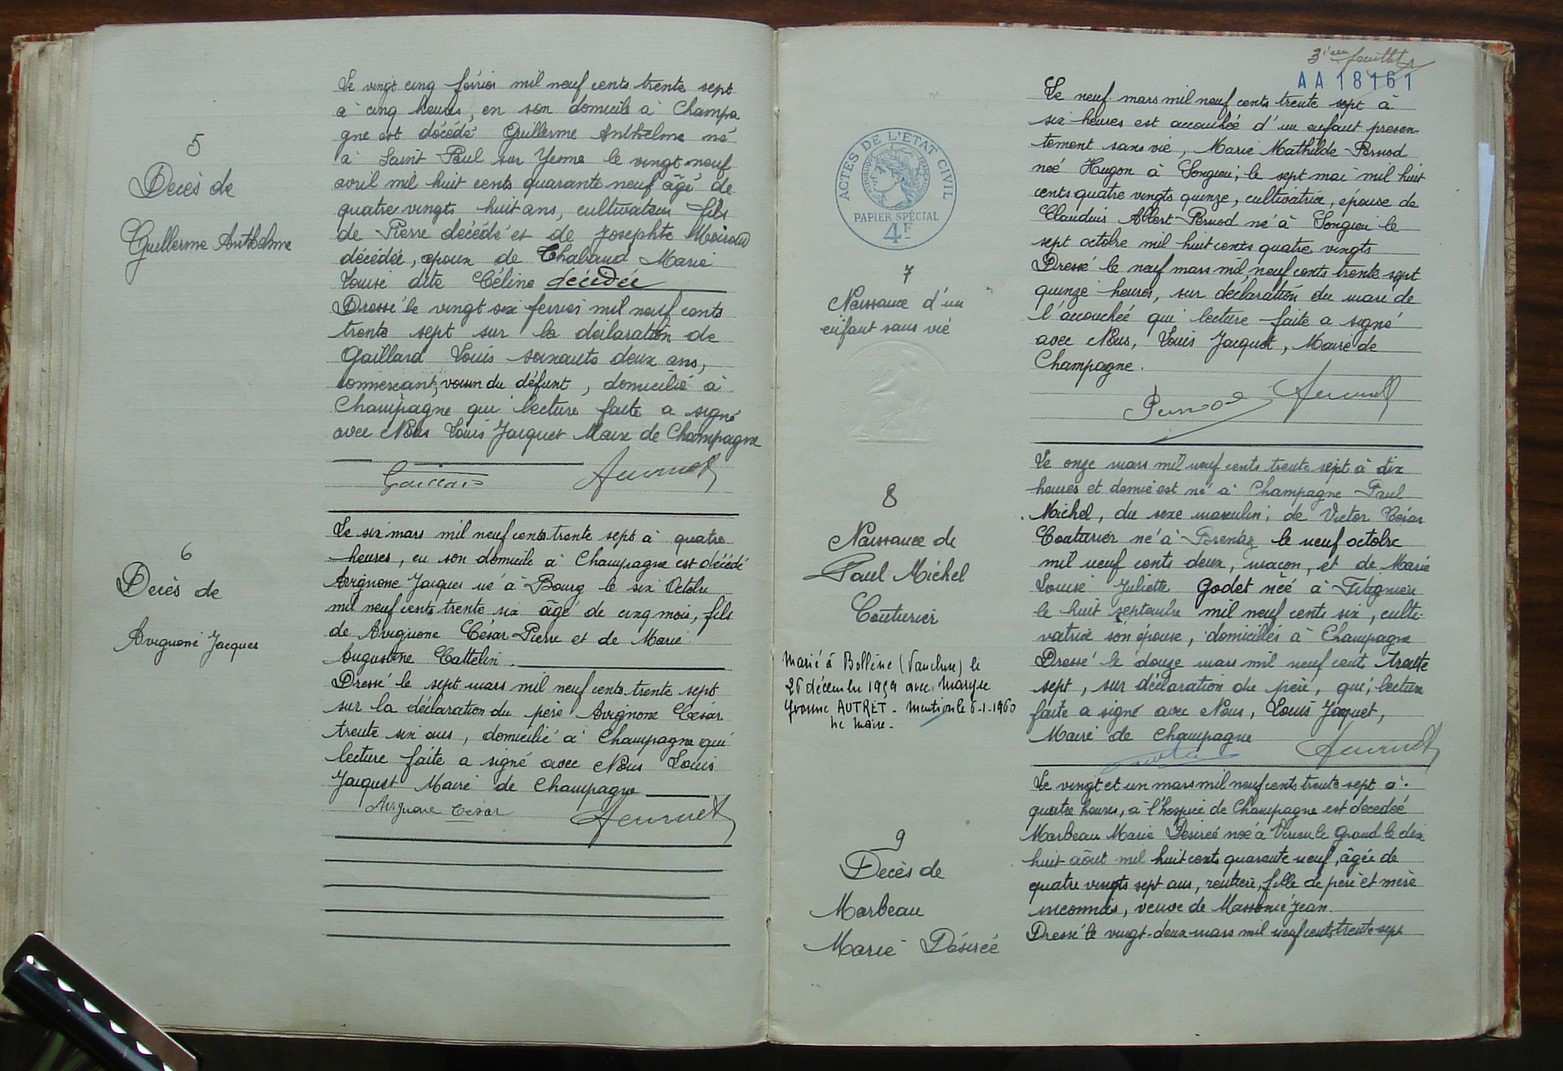 5
Décès de
Guillerme Anthelme
Le vingt cinq février mil neuf cents trente sept
à cinq heures, en son domicile à Champa
gne est décédé Guillerme Anthelme né
à Saint Paul sur Yenne le vingt neuf
avril mil huit cents quarante neuf âgé de
quatre vingts huit ans, cultivateur fils
de Pierre décédé et de Josephte
décédée, époux de Chabaud Marie
Louise dite Céline décédée
Dressé le vingt six ferrier mil neuf cents
trente sept sur la déclaration de
Gaillard Louis soixante deux ans,
commerçant, voisin du défunt, domicilié à
Champagne qui lecture faite a signé
avec Nous Louis Jacquet Maire de Champagne
Gaillard
6
Décès de
Avignone Jacques
Le six mars mil neuf cents trente sept à quatre
heures, en son domicile à Champagne est décédé
Avignone Jacques né à Bourg le six Octobre
mil neuf cents trente six âgé de cinq mois, fils
de Avignone César Pierre et de Marie
Augustine Cattelin.
Dressé le sept mars mil neuf cents trente sept
sur la déclaration du père Avignone César
trente six ans, domicilié à Champagne qui
lecture faite a signé avec Nous Louis
Jacquet Maire de Champagne
Avignone César
3ième feuillet
AA 18161
ACTES DE L'ETAT CIVIL
PAPIER SPÉCIAL
4F
7
Naissance d'un
enfant sans vie
Le neuf mars mil neuf cents trente sept à
six heures est accouchée d'un enfant presen
tement sans vie, Marie Mathilde Pernod
née Hugon à Songieu, le sept mai mil huit
cents quatre vingts quinze, cultivatrice, épouse de
Claudius Albert Pernod né à Songieu le
sept octobre mil huit cents quatre vingts
Dressé le neuf mars mil neuf cents trente sept
quinze heures, sur déclaration du mari de
l'accouchée qui lecture faite a signé
avec Nous, Louis Jacquet, Maire de
Champagne.
Pernod
8
Naissance de
Paul Michel
Couturier
Marié à Bollène (Vaucluse) le
26 décembre 1959 avec Maryse
Yvonne AUTRET. Mention le 6-1-1960
Le Maire.
Le onze mars mil neuf cents trente sept à dix
heures et demie est né à Champagne Paul
Michel, du sexe masculin, de Victor César
Couturier né à Brenaz le neuf octobre
mil neuf cents deux, maçon, et de Marie
Louise Juliette Godet née à
le huit septembre mil neuf cents six, culti-
vatrice son épouse, domiciliés à Champagne
Dressé le douze mars mil neuf cent trente
sept, sur déclaration du père, qui, lecture
faite a signé avec Nous, Louis Jacquet,
Maire de Champagne
9
Décès de
Marbeau
Marie Désirée
Le vingt et un mars mil neuf cents trente sept à
quatre heures, à l'hospice de Champagne est décédée
Marbeau Marie Désirée née à Virieu le Grand le dix
huit août mil huit cents quarante neuf, âgée de
quatre vingts sept ans, rentière, fille de père et mère
inconnus, veuve de Jean.
Dressé le vingt-deux mars mil neuf cents trente sept